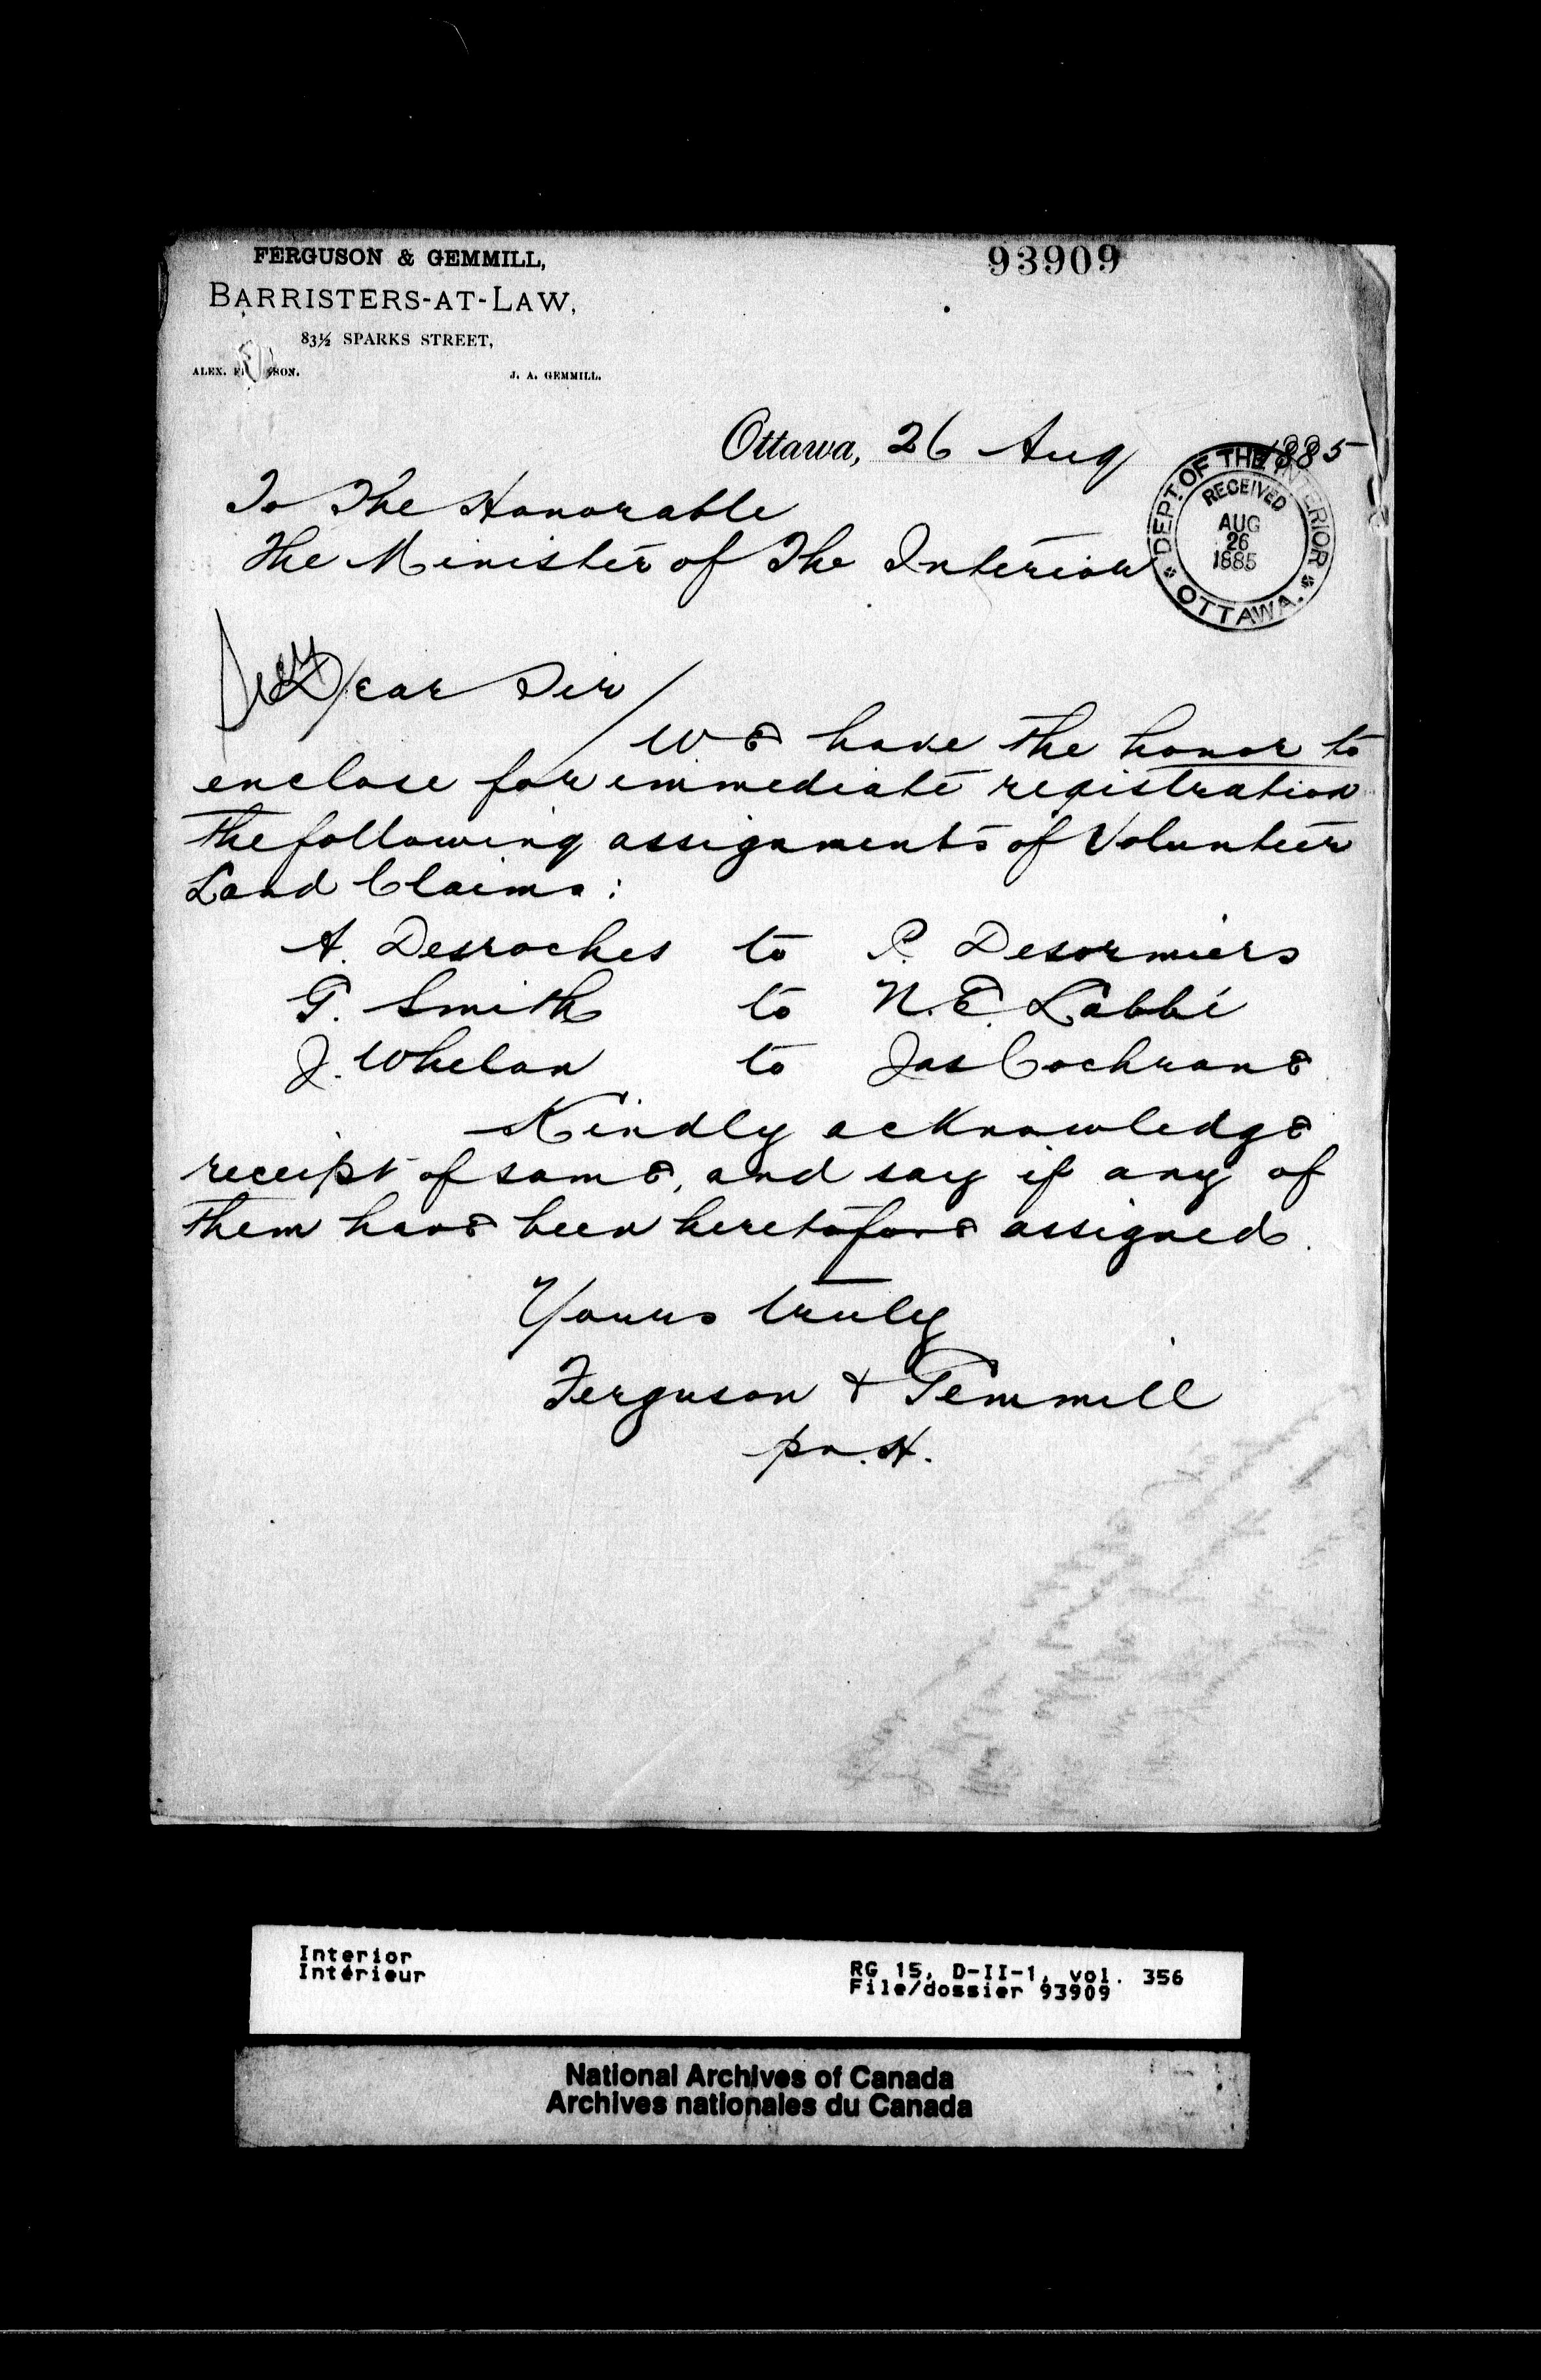 FERGUSON & GEMMILL,
93909
BARRISTERS-AT-LAW,
83½ SPARKS STREET,
ALEX. F SON. J. A. GEMMILL.
Ottawa, 26 Aug 1885
DEPT. OF THE INTERIOR
RECEIVED
AUG
26
1885
OTTAWA.
To The Honorable
The Minister of The Interior
Dear Sir/
We have the honor to
enclose for immediate registration
the following assignments of Volunteer
Land Claims:
A. Desroches to P. Desormiers
G. Smith to N. E. Labbé
J. Whelan to Jas Cochrane
Kindly acknowledge
receipt of same, and say if any of
them have been heretofore assigned.
Yours truly
Ferguson + Gemmill
pr. H.
Interior
Intérieur
RG 15, D-II-1, vol. 356
File/dossier 93909
National Archives of Canada
Archives nationales du Canada